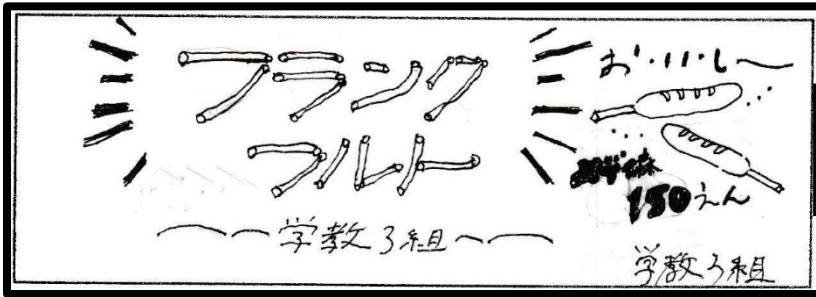 フランク
フルト
〜〜学教3組〜〜
お・い・し〜
150えん
学教3組